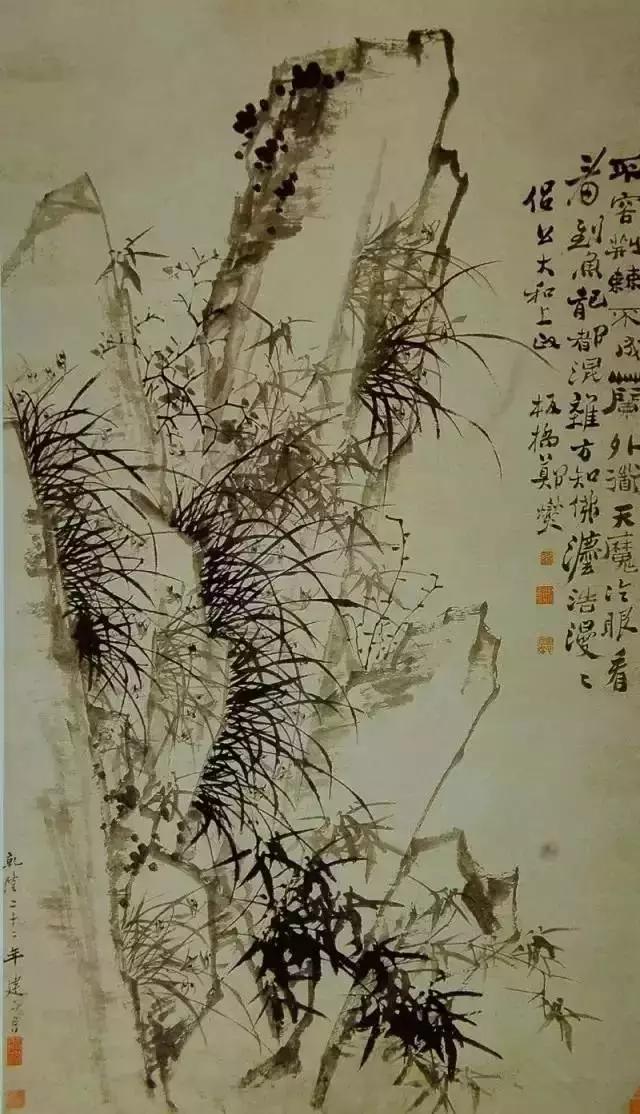 不容荊棘不成蘭外道天魔冷眼看
看到魚龍都混雜方知佛灋浩漫〻
侶公大和上政 板橋鄭燮
乾隆二十二年建月